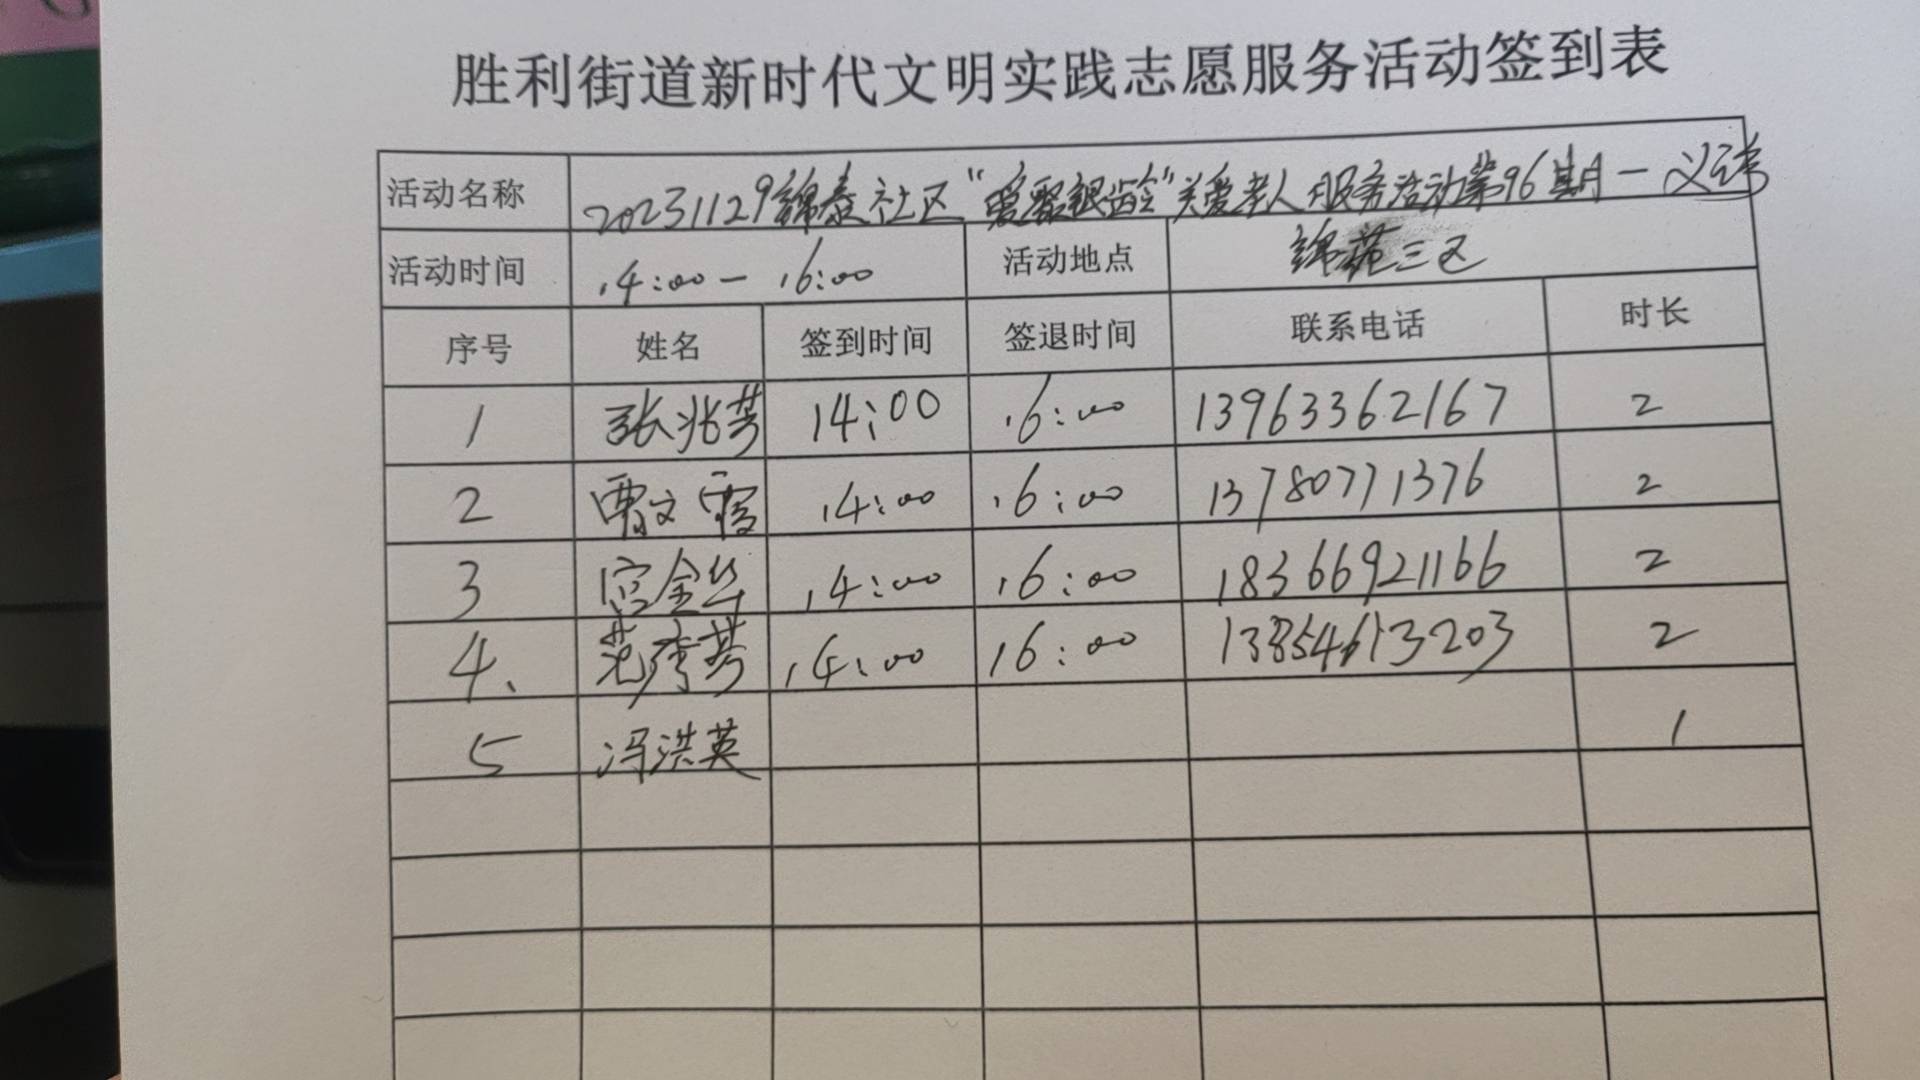 胜利街道新时代文明实践志愿服务活动签到表
活动名称 20231129锦泰社区“爱聚银龄”关爱老人服务活动第96期一义诊
活动时间 14:00— 16:00 活动地点 锦苑三区
序号 姓名 签到时间 签退时间 联系电话 时长
1 张兆芳 14:00 16:00 13963362167 2
2 贾文霞 14:00 16:00 13780771376 2
3 宫金华 14:00 16:00 18366921166 2
4、 范秀芳 14:00 16:00 13854613203 2
5 冯洪英 1